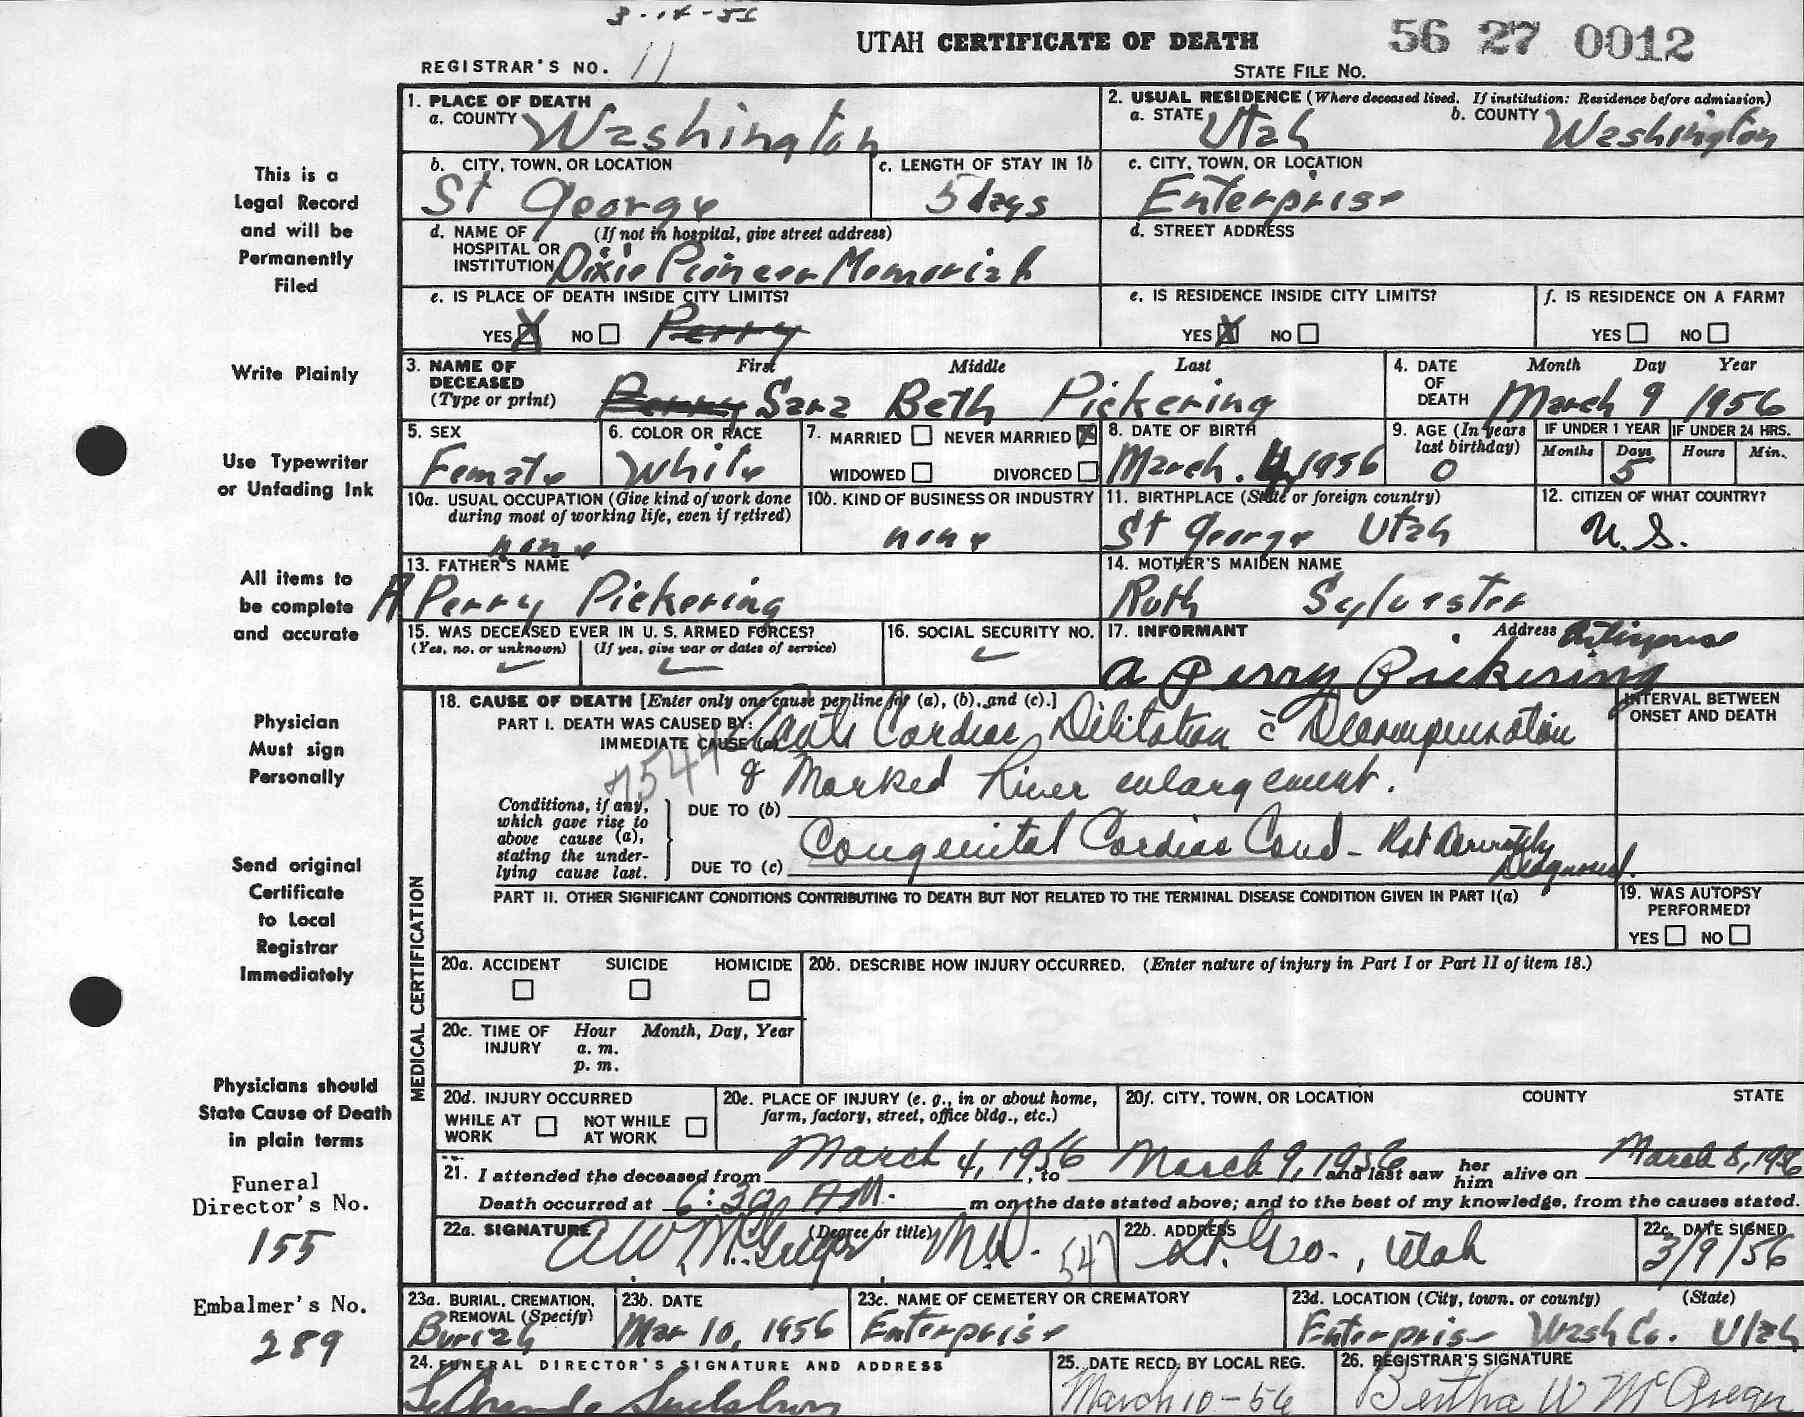 3-14-56
UTAH CERTIFICATE OF DEATH 56 27 0012
REGISTRAR'S NO. 11
STATE FILE NO.
1. PLACE OF DEATH
a. COUNTY Washington
2. USUAL RESIDENCE (Where deceased lived. If institution: Residence before admission)
a. STATE Utah b. COUNTY Washington
b. CITY, TOWN, OR LOCATION St George
c. LENGTH OF STAY IN 1b 5 days
c. CITY, TOWN, OR LOCATION Enterprise
d. NAME OF HOSPITAL OR INSTITUTION (If not in hospital, give street address) Dixie Pioneer Memorial
d. STREET ADDRESS
e. IS PLACE OF DEATH INSIDE CITY LIMITS?
YES X NO Perry
e. IS RESIDENCE INSIDE CITY LIMITS?
YES X NO
f. IS RESIDENCE ON A FARM?
YES NO
3. NAME OF DECEASED (Type or print)
First Middle Last
Perry Sara Beth Pickering
4. DATE OF DEATH Month Day Year
March 9 1956
5. SEX Female
6. COLOR OR RACE White
7. MARRIED NEVER MARRIED X
WIDOWED DIVORCED
8. DATE OF BIRTH March. 4, 1956
9. AGE (In years last birthday) 0
IF UNDER 1 YEAR Months Days 5
IF UNDER 24 HRS. Hours Min.
10a. USUAL OCCUPATION (Give kind of work done during most of working life, even if retired) none
10b. KIND OF BUSINESS OR INDUSTRY none
11. BIRTHPLACE (State or foreign country) St George Utah
12. CITIZEN OF WHAT COUNTRY? U.S.
13. FATHER'S NAME A Perry Pickering
14. MOTHER'S MAIDEN NAME Ruth Sylvester
15. WAS DECEASED EVER IN U. S. ARMED FORCES?
(Yes, no, or unknown) (If yes, give war or dates of service)
16. SOCIAL SECURITY NO.
17. INFORMANT Address Enterprise
A Perry Pickering
18. CAUSE OF DEATH [Enter only one cause per line for (a), (b), and (c).]
PART I. DEATH WAS CAUSED BY:
IMMEDIATE CAUSE (a) Acute Cardiac Dilitation c̄ Decompensation
& Marked Liver enlargement.
7544
INTERVAL BETWEEN ONSET AND DEATH
Conditions, if any, which gave rise to above cause (a), stating the underlying cause last.
DUE TO (b)
DUE TO (c) Congenital Cardiac Cond - Not Diagnosed.
PART II. OTHER SIGNIFICANT CONDITIONS CONTRIBUTING TO DEATH BUT NOT RELATED TO THE TERMINAL DISEASE CONDITION GIVEN IN PART I(a)
19. WAS AUTOPSY PERFORMED?
YES NO
MEDICAL CERTIFICATION
20a. ACCIDENT SUICIDE HOMICIDE
20b. DESCRIBE HOW INJURY OCCURRED. (Enter nature of injury in Part I or Part II of item 18.)
20c. TIME OF INJURY Hour Month, Day, Year
a. m.
p. m.
20d. INJURY OCCURRED
WHILE AT WORK NOT WHILE AT WORK
20e. PLACE OF INJURY (e. g., in or about home, farm, factory, street, office bldg., etc.)
20f. CITY, TOWN, OR LOCATION COUNTY STATE
21. I attended the deceased from March 4, 1956, to March 9, 1956 and last saw her him alive on March 8, 1956
Death occurred at 6:30 AM. m on the date stated above; and to the best of my knowledge, from the causes stated.
22a. SIGNATURE (Degree or title) A W McGregor M.D. 547
22b. ADDRESS St. Geo., Utah
22c. DATE SIGNED 3/9/56
23a. BURIAL, CREMATION, REMOVAL (Specify) Burial
23b. DATE Mar 10, 1956
23c. NAME OF CEMETERY OR CREMATORY Enterprise
23d. LOCATION (City, town, or county) (State)
Enterprise Wash Co. Utah
24. FUNERAL DIRECTOR'S SIGNATURE AND ADDRESS
25. DATE RECD. BY LOCAL REG. March 10-56
26. REGISTRAR'S SIGNATURE Bertha W McGregor
This is a
Legal Record
and will be
Permanently
Filed
Write Plainly
Use Typewriter
or Unfading Ink
All items to
be complete
and accurate
Physician
Must sign
Personally
Send original
Certificate
to Local
Registrar
Immediately
Physicians should
State Cause of Death
in plain terms
Funeral
Director's No.
155
Embalmer's No.
289